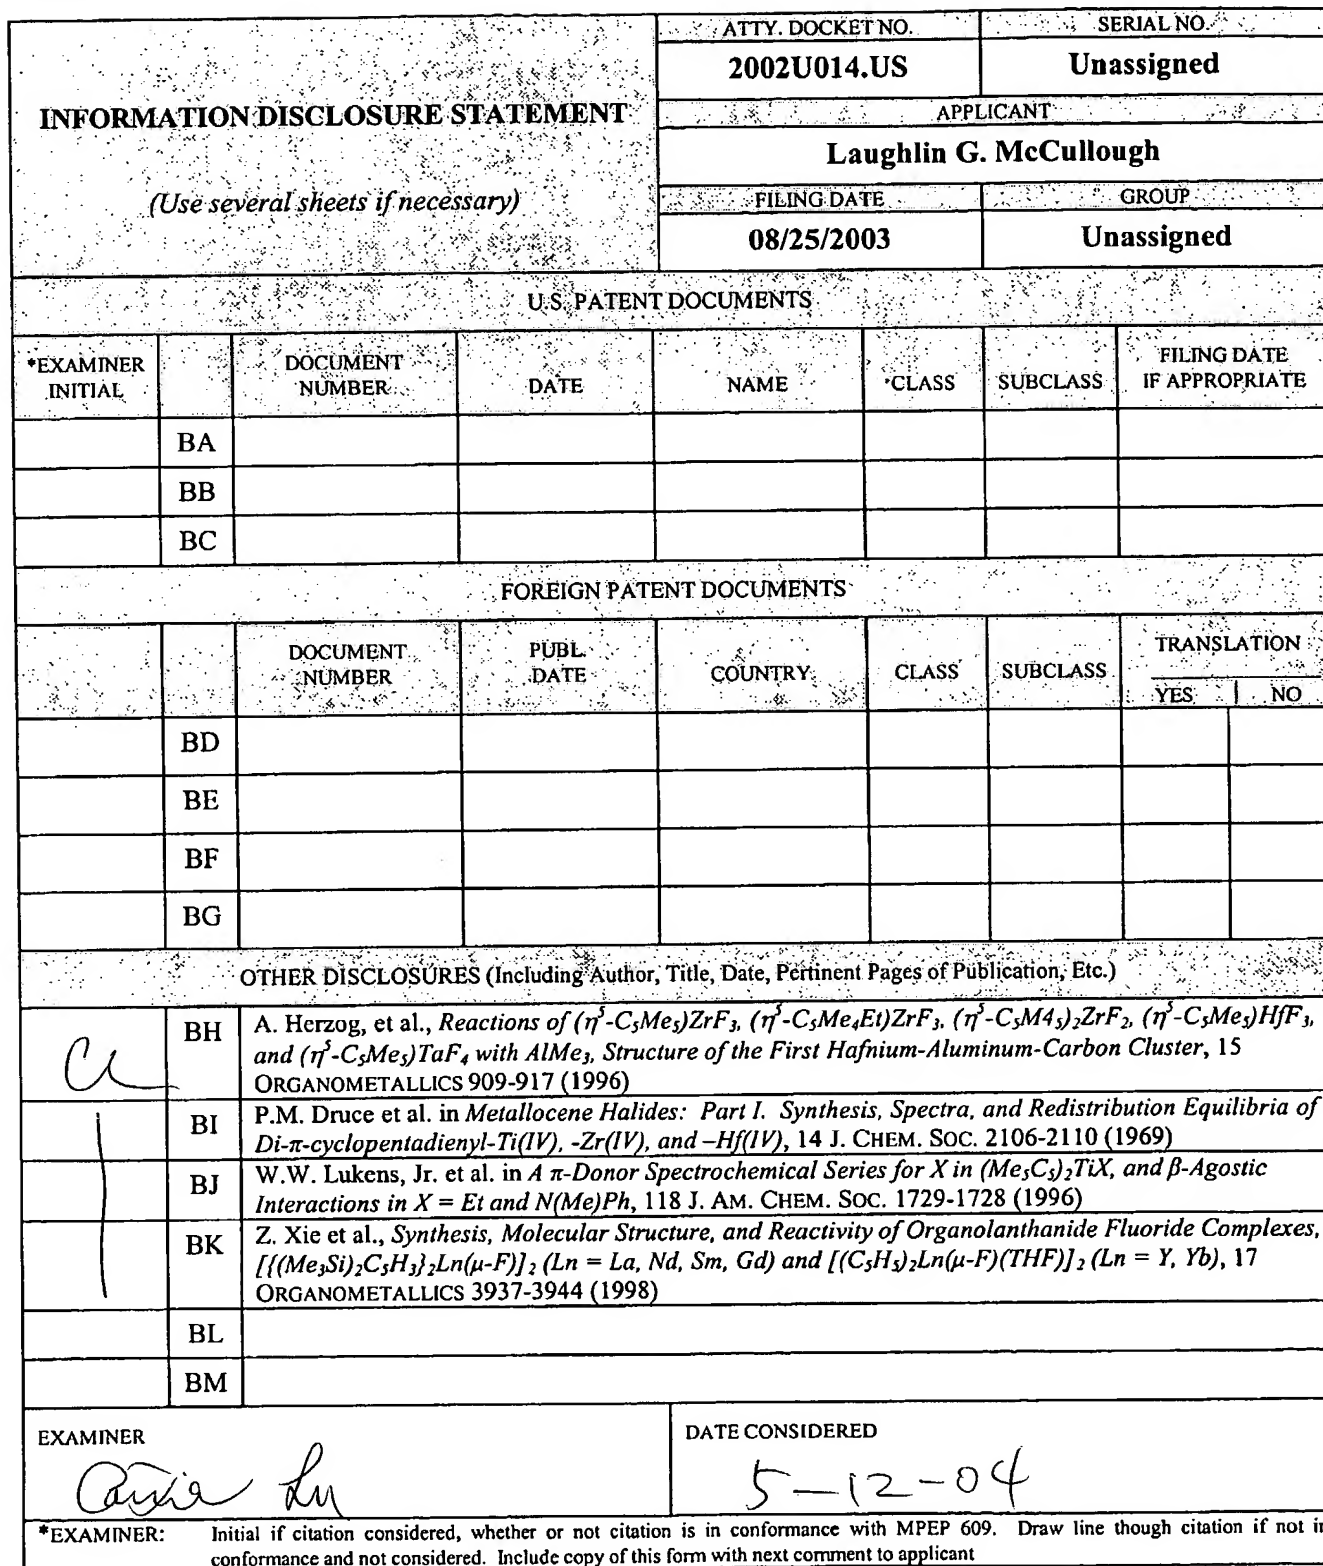 INFORMATION DISCLOSURE STATEMENT
(Use several sheets if necessary)
ATTY. DOCKET NO.
2002U014.US
SERIAL NO.
Unassigned
APPLICANT
Laughlin G. McCullough
FILING DATE
08/25/2003
GROUP
Unassigned
U.S. PATENT DOCUMENTS
*EXAMINER INITIAL DOCUMENT NUMBER DATE NAME CLASS SUBCLASS FILING DATE IF APPROPRIATE
BA
BB
BC
FOREIGN PATENT DOCUMENTS
DOCUMENT NUMBER PUBL. DATE COUNTRY CLASS SUBCLASS TRANSLATION
YES NO
BD
BE
BF
BG
OTHER DISCLOSURES (Including Author, Title, Date, Pertinent Pages of Publication, Etc.)
CL BH A. Herzog, et al., Reactions of (η⁵-C₅Me₅)ZrF₃, (η⁵-C₅Me₄Et)ZrF₃, (η⁵-C₅M4₅)₂ZrF₂, (η⁵-C₅Me₅)HfF₃,
and (η⁵-C₅Me₅)TaF₄ with AlMe₃, Structure of the First Hafnium-Aluminum-Carbon Cluster, 15
ORGANOMETALLICS 909-917 (1996)
BI P.M. Druce et al. in Metallocene Halides: Part I. Synthesis, Spectra, and Redistribution Equilibria of
Di-π-cyclopentadienyl-Ti(IV), -Zr(IV), and –Hf(IV), 14 J. CHEM. SOC. 2106-2110 (1969)
BJ W.W. Lukens, Jr. et al. in A π-Donor Spectrochemical Series for X in (Me₅C₅)₂TiX, and β-Agostic
Interactions in X = Et and N(Me)Ph, 118 J. AM. CHEM. SOC. 1729-1728 (1996)
BK Z. Xie et al., Synthesis, Molecular Structure, and Reactivity of Organolanthanide Fluoride Complexes,
[{(Me₃Si)₂C₅H₃}₂Ln(μ-F)]₂ (Ln = La, Nd, Sm, Gd) and [(C₅H₅)₂Ln(μ-F)(THF)]₂ (Ln = Y, Yb), 17
ORGANOMETALLICS 3937-3944 (1998)
BL
BM
EXAMINER
Caixia Lu
DATE CONSIDERED
5-12-04
*EXAMINER: Initial if citation considered, whether or not citation is in conformance with MPEP 609. Draw line though citation if not in
conformance and not considered. Include copy of this form with next comment to applicant